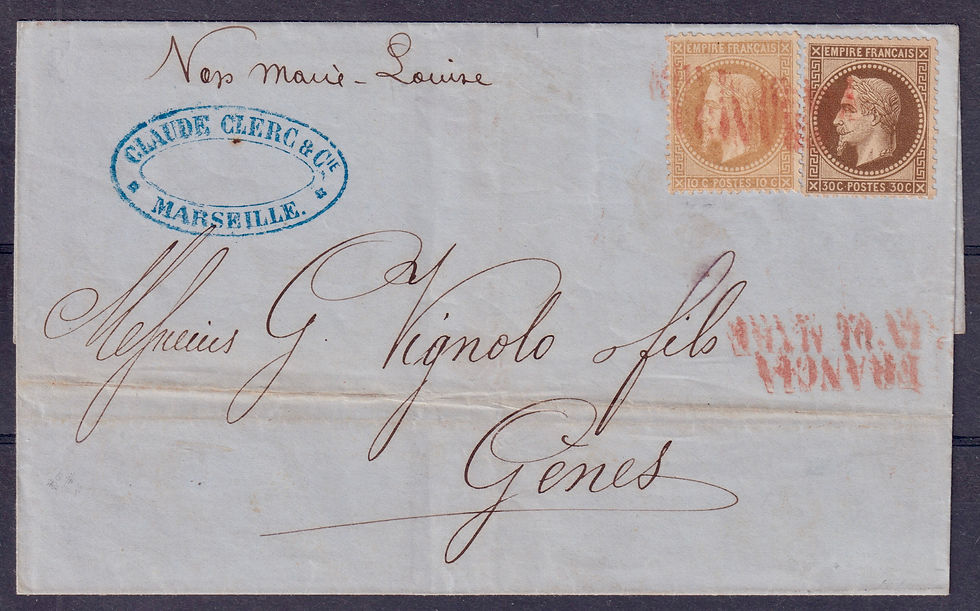 Vap Marie-Louise
CLAUDE CLERC & CIE
MARSEILLE.
EMPIRE FRANÇAIS
10 C POSTES 10 C
EMPIRE FRANÇAIS
30 C POSTES 30 C
Messieurs G Vignolo & fils
FRANCIA
Gênes